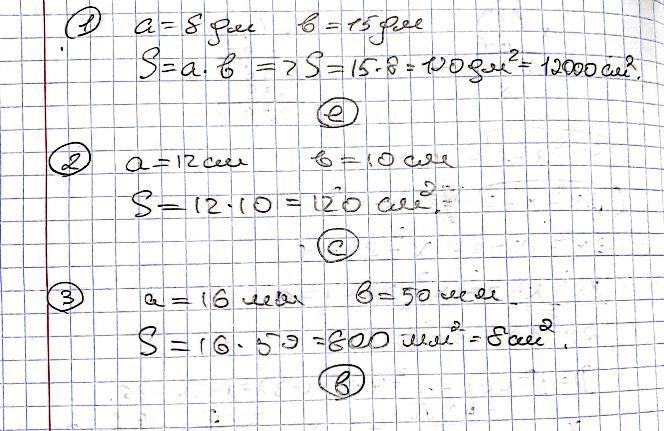 1 a = 8 дм в = 15 дм
S = a · в => S = 15 · 8 = 120 дм² = 12000 см².
e
2 a = 12 см в = 10 см
S = 12 · 10 = 120 см².
c
3 a = 16 мм в = 50 мм
S = 16 · 50 = 800 мм² = 8 см².
в